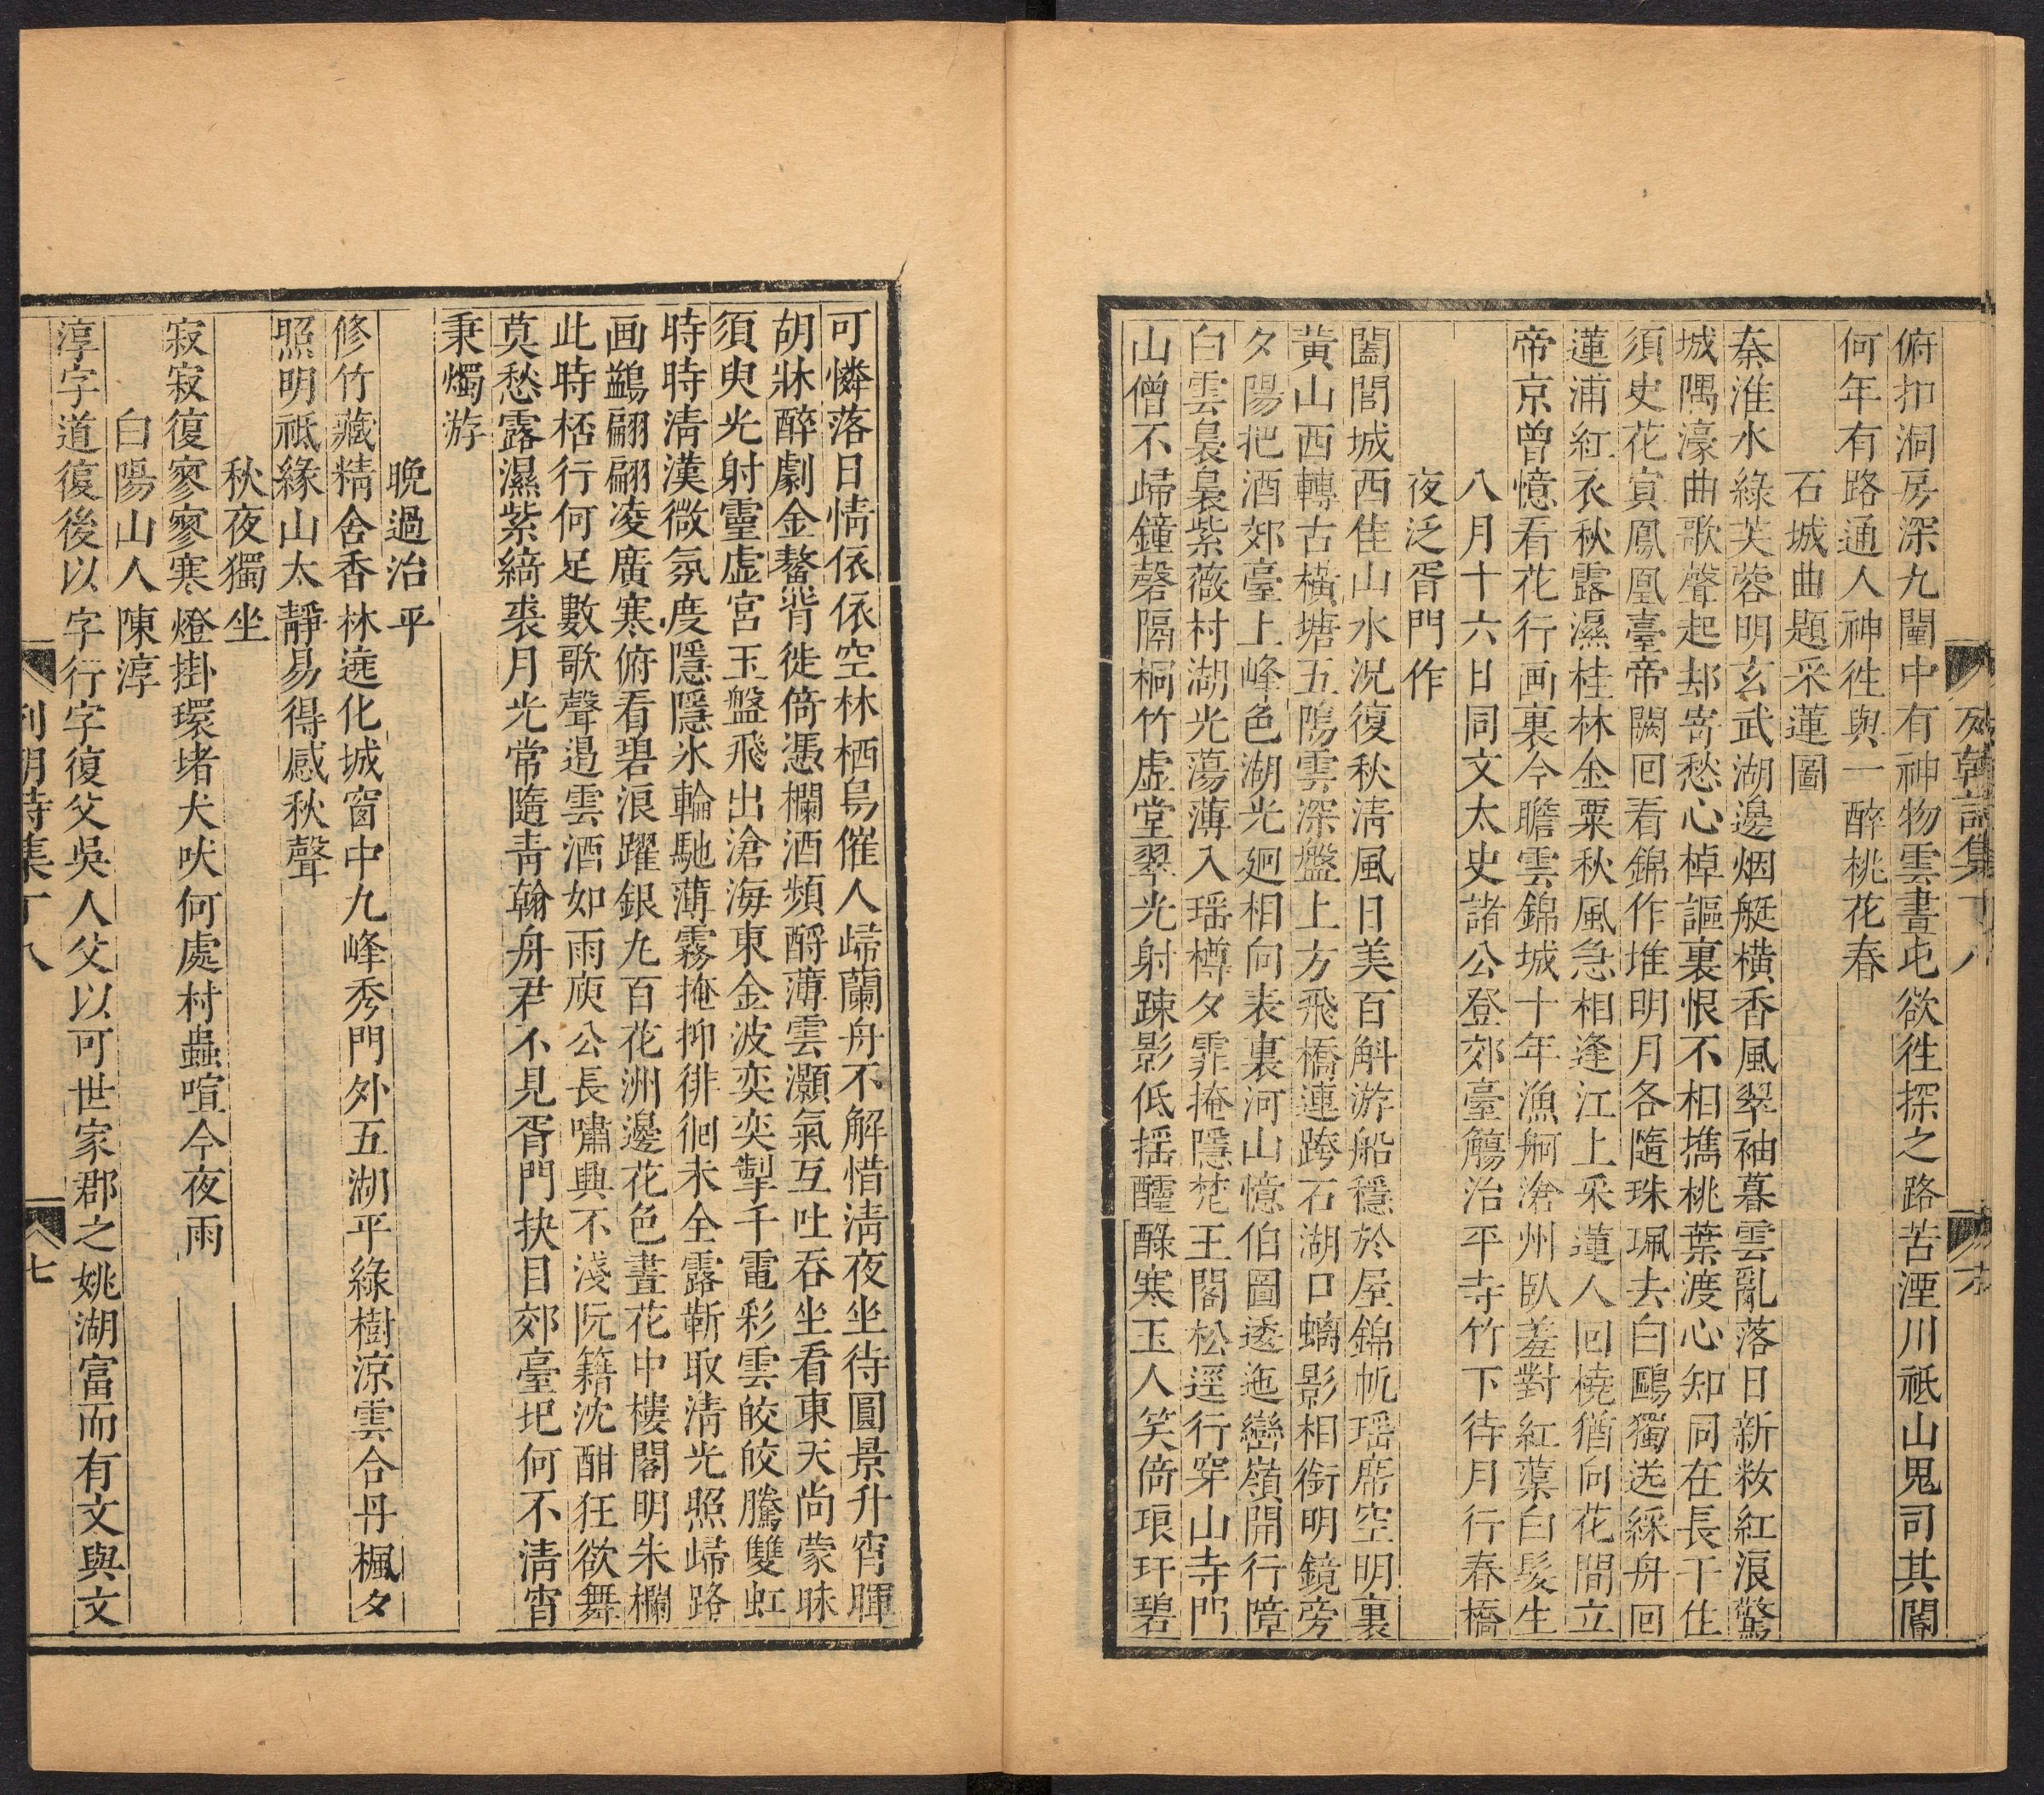 俯扣洞房深九闈中有神物雲晝屯欲徃探之路苦湮川祗山鬼司其閽
何年有路通人神徃與一醉桃花春
石城曲題采蓮圖
秦淮水綠芙蓉明玄武湖邊烟艇橫香風翠袖暮雲亂落日新妝紅浪驚
城隅濠曲歌聲起刦寄愁心棹謳裏恨不相㩦桃葉渡心知同在長干住
須史花實鳳凰臺帝闕囘看錦作堆明月各隨珠珮去白鷗獨送綵舟回
蓮浦紅衣秋露濕桂林金粟秋風急相逢江上采蓮人回橈猶向花間立
帝京曾憶看花行画裏今瞻雲錦城十年漁舸滄州臥羞對紅蕖白髮生
八月十六日同文太史諸公登郊臺觴治平寺竹下待月行春橋
夜泛胥門作
闔閭城西佳山水況復秋淸風日美百斛游船穩於屋錦帆瑶席空明裏
黃山西轉古橫塘五隖雲深盤上方飛橋連跨石湖口螭影相銜明鏡旁
夕陽把酒郊臺上峰色湖光廻相向表裏河山憶伯圖逶迤巒嶺開行障
白雲裊裊紫薇村湖光蕩薄入瑶樽夕霏掩隱梵王閣松逕行穿山寺門
山僧不歸鐘磬隔桐竹虛堂翠光射踈影低揺醽醁寒玉人笑倚琅玕碧
可憐落日情依依空林栖鳥催人歸蘭舟不解惜淸夜坐待圓景升宵暉
胡牀醉劇金鰲背徙倚憑欄酒頻酹薄雲灝氣互吐吞坐看東天尚蒙昧
須臾光射靈虛宮玉盤飛出滄海東金波奕奕掣千電彩雲皎皎騰雙虹
時時淸漢微氛度隱隱氷輪馳薄霧掩抑徘徊未全露靳取淸光照歸路
画鷁翩翩凌廣寒俯看碧浪躍銀丸百花洲邊花色晝花中樓閣明朱欄
此時桮行何足數歌聲遏雲酒如雨庾公長嘯興不淺阮籍沈酣狂欲舞
莫愁露濕紫綺裘月光常隨靑翰舟君不見胥門抉目郊臺圯何不淸宵
秉燭游
晚過治平
修竹藏精舍香林遶化城窗中九峰秀門外五湖平綠樹凉雲合丹楓夕
照明祗緣山太靜易得感秋聲
秋夜獨坐
寂寂復寥寥寒燈掛環堵犬吠何處村蟲喧今夜雨
白陽山人陳淳
淳字道復後以字行字復父吳人父以可世家郡之姚湖富而有文與文
列朝詩集丁八
七